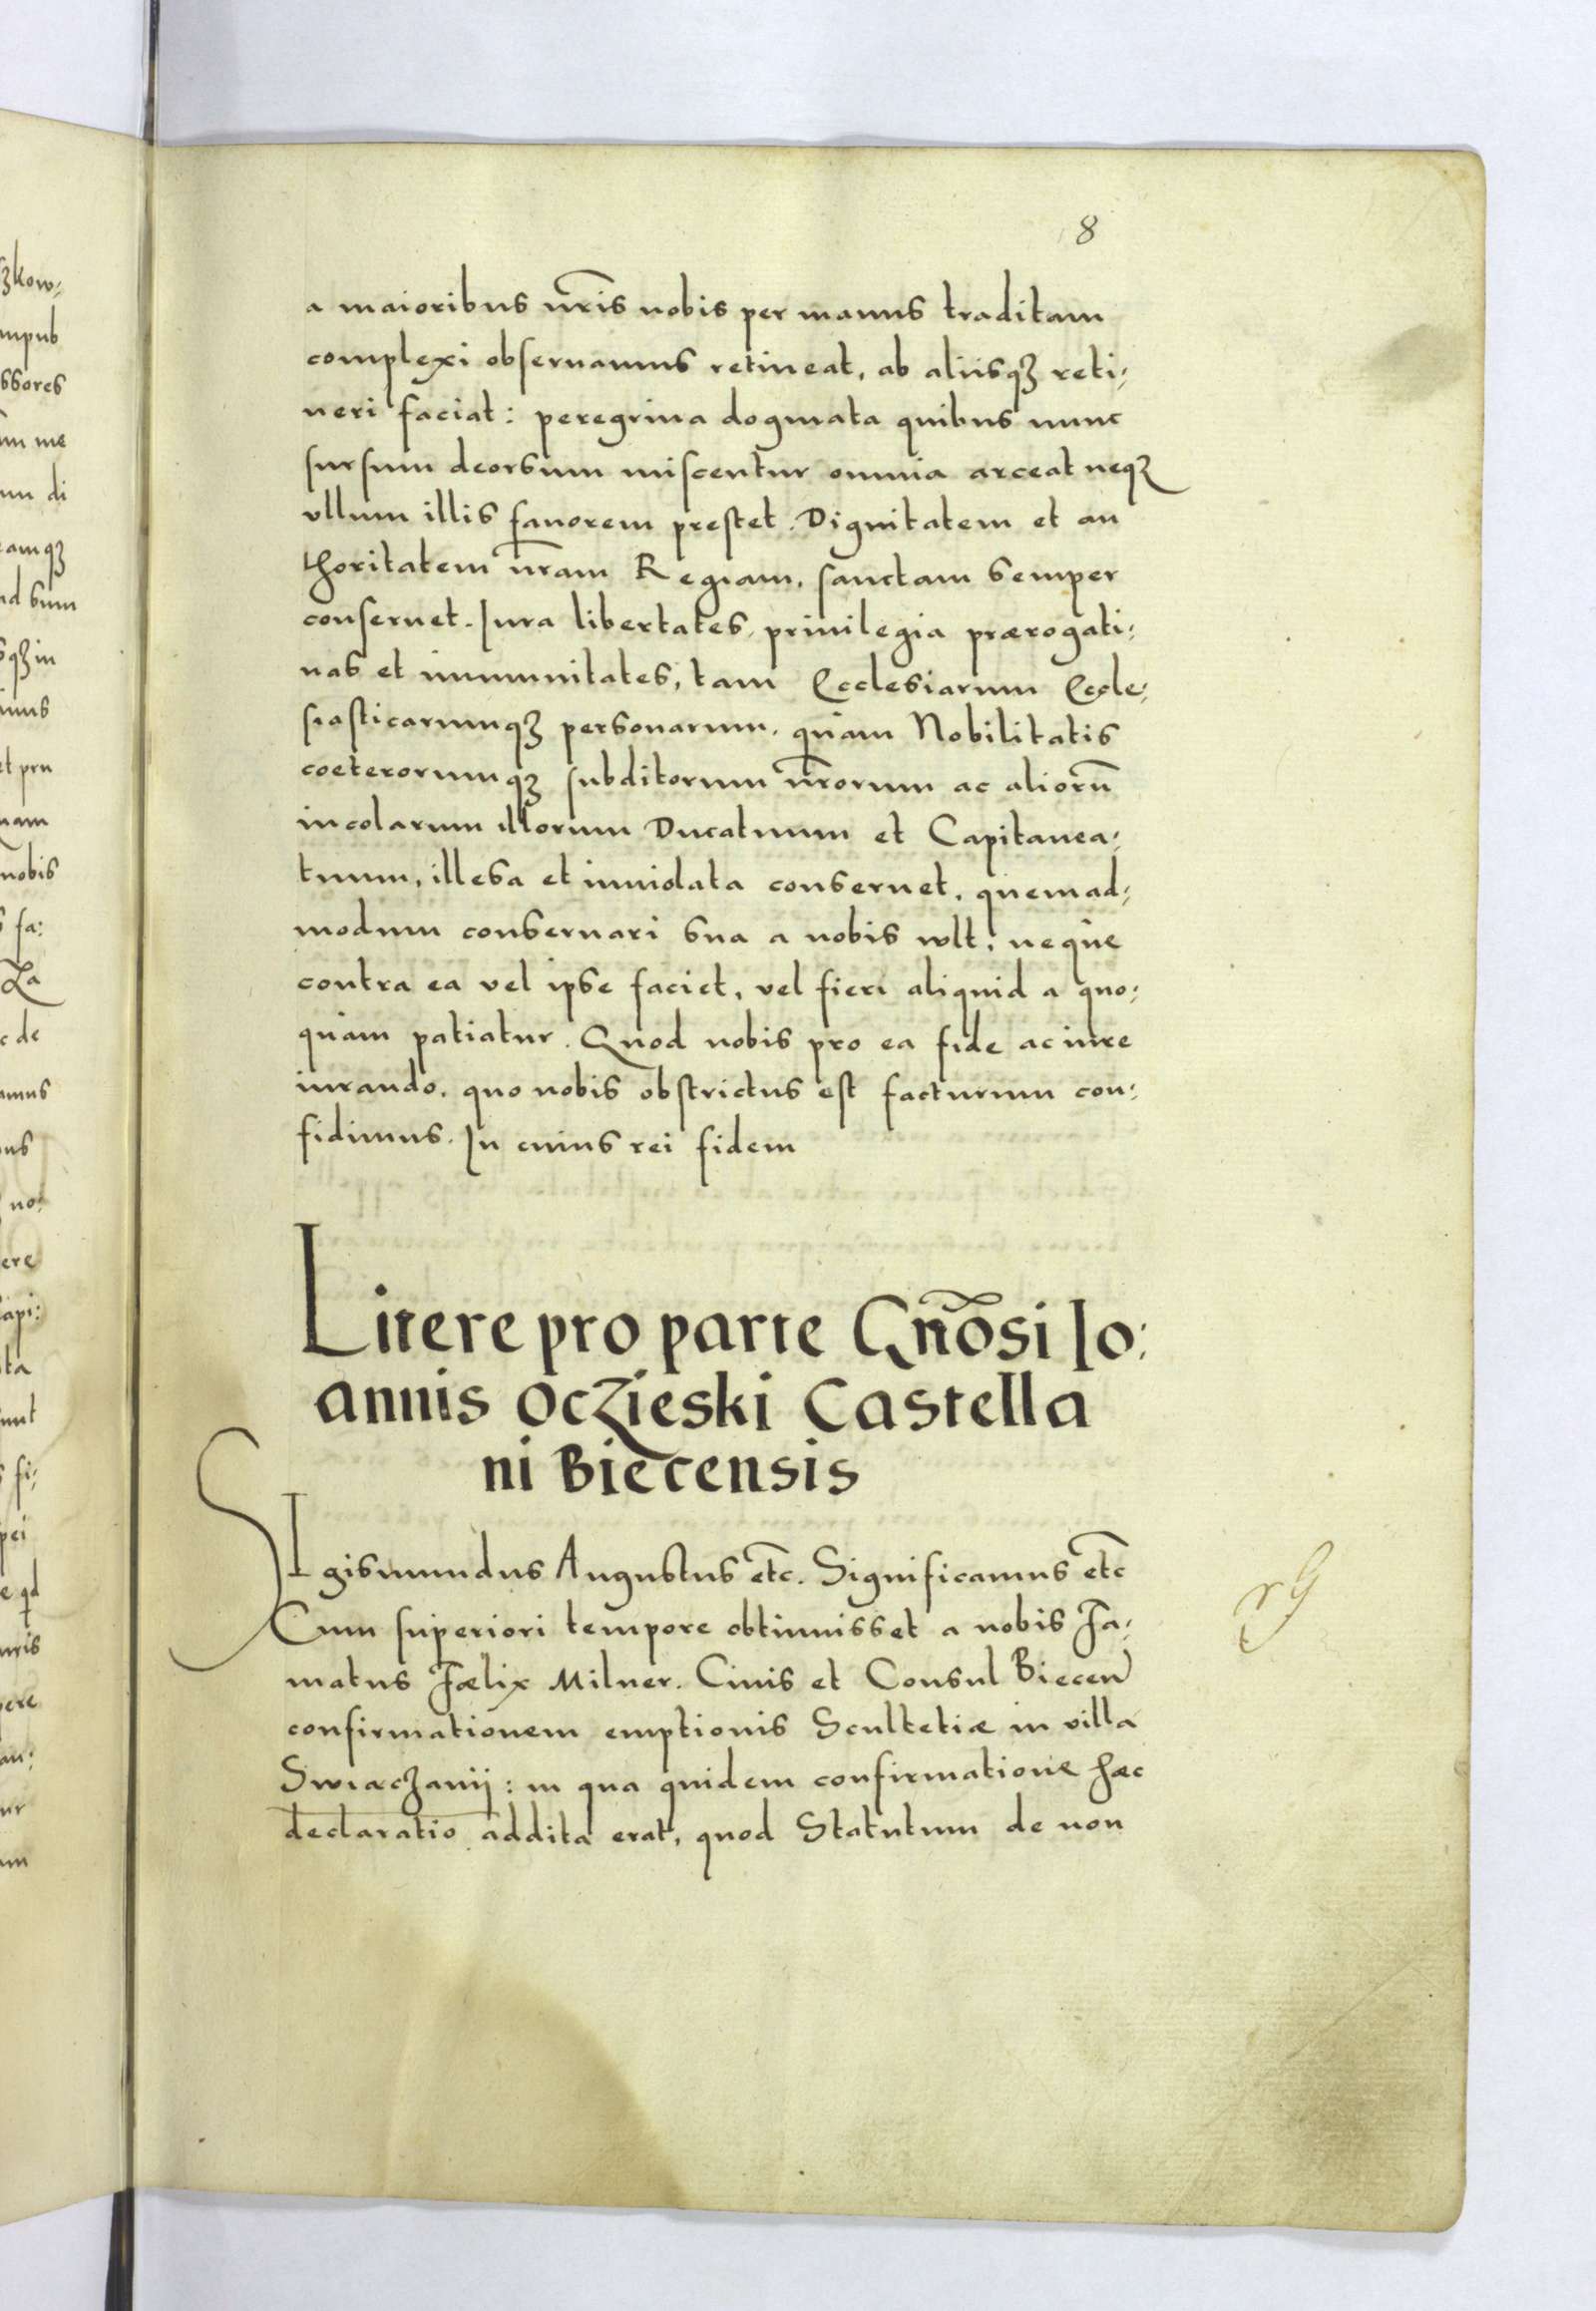 8
a maioribus nr̄is nobis per manus traditam
complexi obseruamus retineat, ab aliisqꝫ reti⹀
neri faciat: peregrina dogmata quibus nunc
sursum deorsum miscentur omnia arceat neqꝫ
vllum illis fauorem prestet. Dignitatem et au
thoritatem nr̄am Regiam, sanctam semper
conseruet. Iura libertates, priuilegia prærogati⹀
uas et immunitates, tam Ecclesiarum Eccle⹀
siasticarumqꝫ personarum, quam Nobilitatis
coeterorumqꝫ subditorum nr̄orum ac aliorū
incolarum illorum Ducatuum et Capitanea⹀
tuum, illesa et inuiolata conseruet, quemad⹀
modum conseruari sua a nobis wlt: neque
contra ea vel ipse faciet, vel fieri aliquid a quo⹀
quam patiatur. Quod nobis pro ea fide ac iure
iurando, quo nobis obstrictus est facturum con⹀
fidimus. In cuius rei fidem
Litere pro parte Gn̄osi Io:
annis Oczieski Castella
ni Biecensis
SIgismundus Augustus etc̄. Significamus etc̄
Cum superiori tempore obtinuisset a nobis Fa⹀
matus Fælix Milner. Ciuis et Consul Biecen̄
confirmationem emptionis Scultetiæ in villa
Swiaczanij: in qua quidem confirmatione hæc
declaratio addita erat, quod Statutum de non